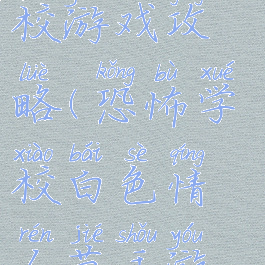 校游戏攻
lüè kǒng bù xué
略(恐怖学
xiào bái sè qíng
校白色情
rén jié shòu yóu